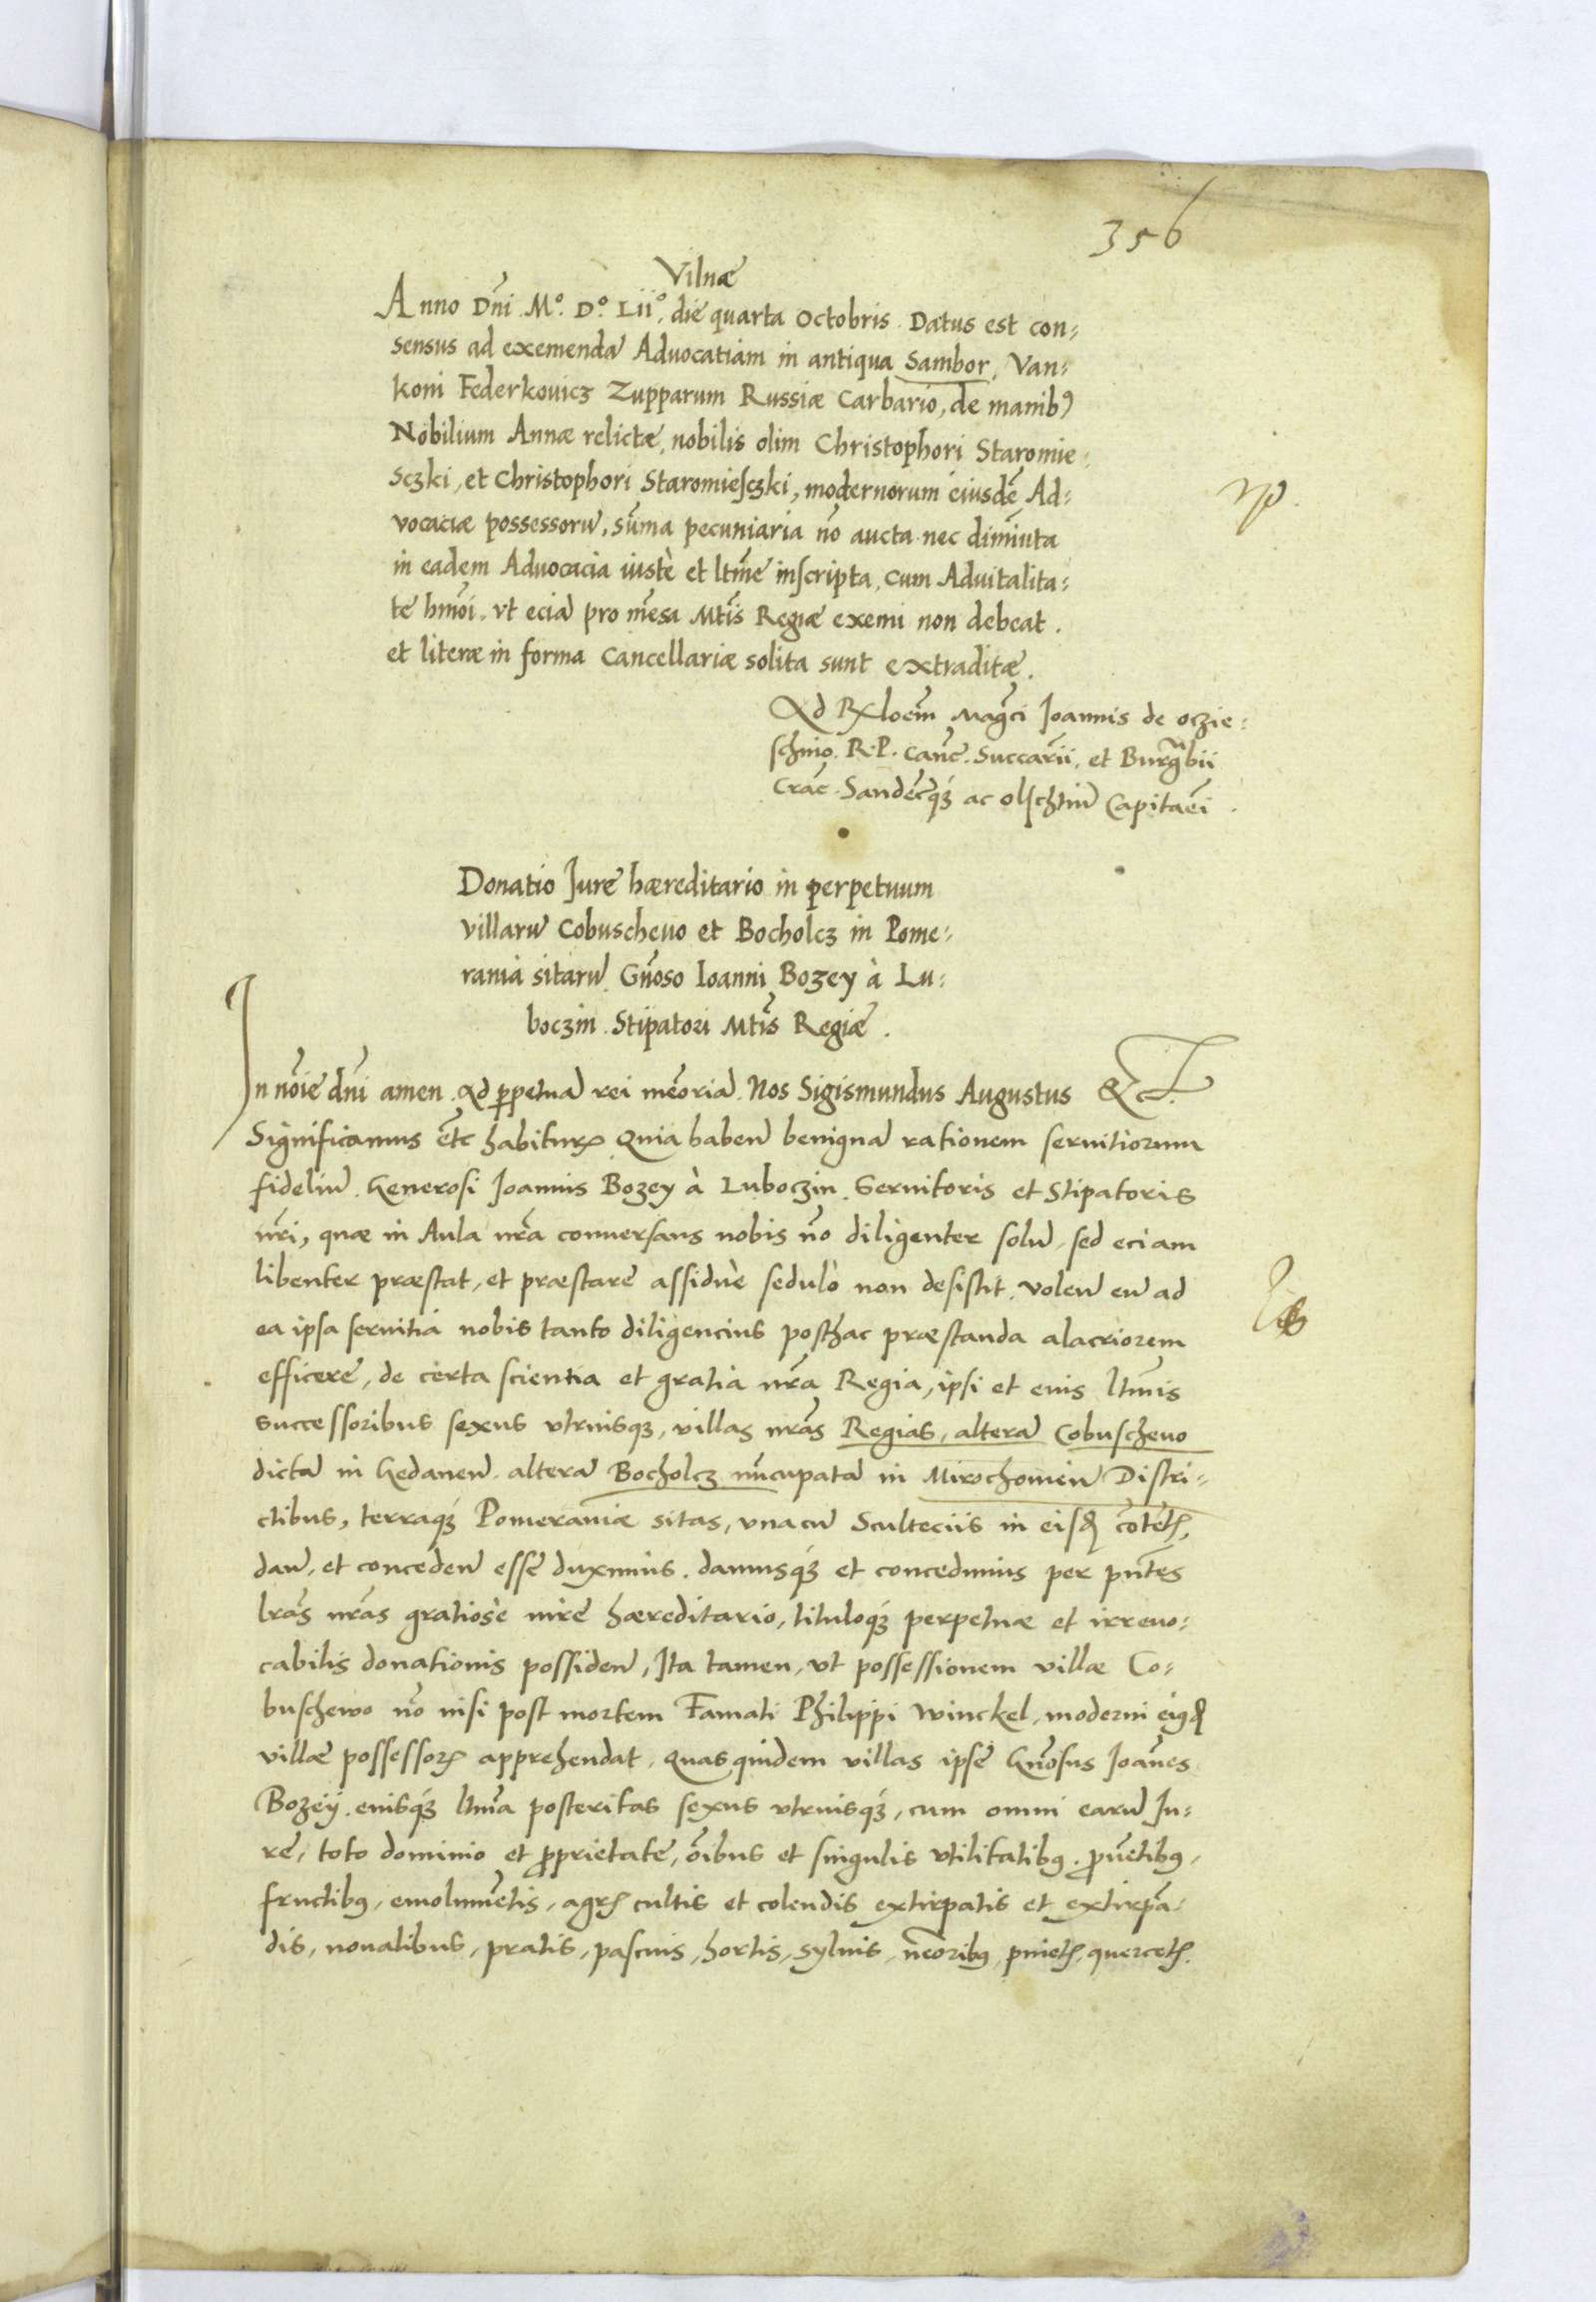 356
Vilnæ
Anno Dn̄i M.º D.º Lii.º die quarta Octobris. Datus est con=
sensus ad exemendā Aduocatiam in antiqua Sambor, Van=
koni Federkouicz Zupparum Russiæ Carbario, de manibꝰ
Nobilium Annæ relictæ, nobilis olim Christophori Staromie=
sczki, et Christophori Staromiesczki, modernorum eiusdē Ad=
vocaciæ possessorū, sūma pecuniaria nō aucta nec diminuta
in eadem Aduocacia iustè et ltīme inscripta, cum Aduitalita=
te hmōi. vt eciā pro mēsa Mtīs Regiæ exemi non debeat.
et literæ in forma Cancellariæ solita sunt extraditæ.
Ad Rłoēm Magcī Joannis de oczie=
schino. R. P. Canc̄. Succarīi, et Burgrābii
Crāc. Sandec̄qꝫ ac olschtiū Capitaēi.
Donatio Jure hæreditario in perpetuum
villarū Cobuscheuo et Bocholcz in Pome=
rania sitarū Gn̄oso Ioanni Bozey à Lu=
boczin. Stipatori Mtīs Regiæ.
In noīe dn̄i amen. Ad ꝑpetuā rei meōriā. Nos Sigismundus Augustus &c̄.
Significamus et̄c habiturꝝ Quia habeñ benignā rationem seruitiorum
fideliū Generosi Joannis Bozey à Luboczin. Seruitoris et Stipatoris
nrī, quæ in Aula nrā conuersans nobis nō diligenter solū, sed eciam
libenter præstat, et præstare assiduè sedulò non desistit. voleñ eū ad
ea ipsa seruitia nobis tanto diligencius posthac præstanda alacriorem
efficere, de certa scientia et gratia nrā Regia, ipsi et eius ltīmis
successoribus sexus vtriusqꝫ, villas nrās Regias, alterā Cobuscheuo
dictā in Gedaneñ. alterā Bocholcz nūcupatā in Mirochowieñ Distri=
ctibus, terraqꝫ Pomeraniæ sitas, vnacū Sculteciis in eisđ cōtētꝭ,
dañ, et concedeñ esse duximus. damusqꝫ et concedimus per pn̄tes
lrās nrās gratiosè iure hæreditario, tituloqꝫ perpetuæ et irreuo=
cabilis donationis possideñ, Ita tamen, vt possessionem villæ Co=
buschewo nō nisi post mortem Famati Philippi Winckel, moderni eiꝰđ
villæ possessorꝭ apprehendat. Quas quidem villas ipse Gn̄osus Joān̄es
Bozeÿ. eiusqꝫ ltīma posteritas sexus vtriusqꝫ, cum omni earū Ju=
re, toto dominio et ꝓprietate, oībus et singulis vtilitatibꝰ. ꝓuētibꝰ,
fructibꝰ, emolumētis, agrꝭ cultis et colendis extirpatis et extirpā=
dis, noualibus, pratis, pascuis, hortis, syluis, nēoribꝰ, pinetꝭ, quercetꝭ.